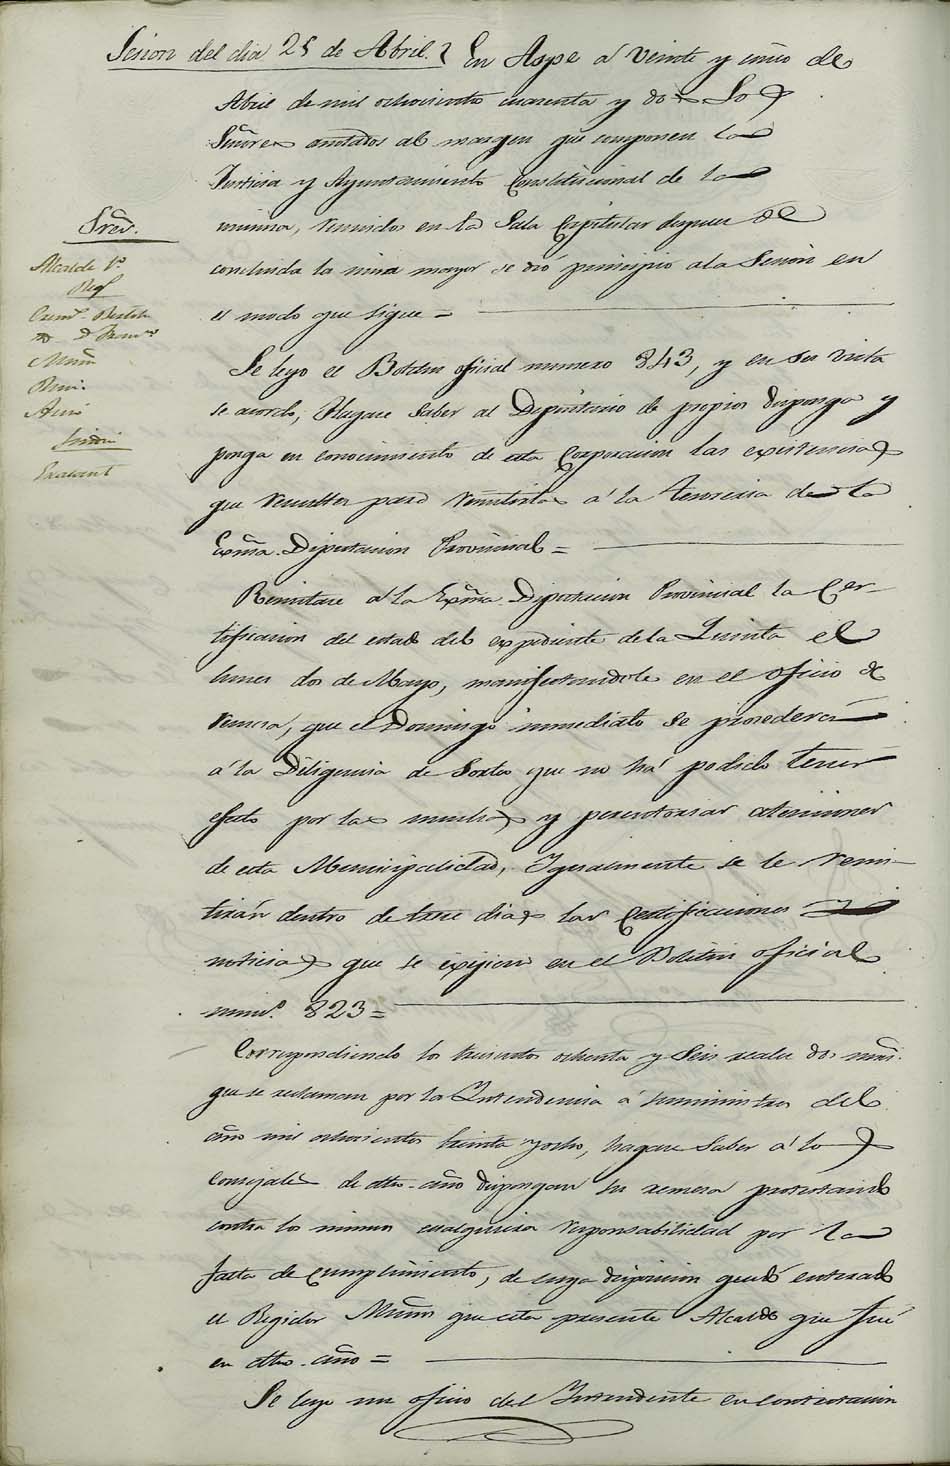 Sesion del dia 25 de Abril. En Aspe á veinte y cinco de
Abril de mil ochocientos cuarenta y dos: Los
Señores anotados al margen que componen la
Justicia y Ayuntamiento Constitucional de la
misma, reunidos en la Sala Capitular despues de
concluida la misa mayor se dió principio a la Sesion en
el modo que sigue =
Sres.
Alcalde 1º
Reg.
Muñ
Sindico
Se leyo el Boletin oficial numero 843, y en su vista
se acordó, Hagase saber al Depositario de propios disponga y
ponga en conocimiento de esta Corporacion las existencias
que resulten para remitirlas á la Tesoreria de la
Exma. Diputacion Provincial =
Remitase á la Exma. Diputacion Provincial la Cer-
tificacion del estado del expediente de la Quinta el
lunes dos de Mayo, manifestandole en el oficio de
remesa, que el Domingo inmediato se procederá
á la Diligencia de Sorteo que no há podido tener
efecto por las muchas y perentorias atenciones
de esta Municipalidad, Igualmente se le remi-
tirán dentro de trece dias las Certificaciones y
noticias que se exigieron en el Boletin oficial
numº. 823 =
Correspondiendo los trescientos ochenta y seis reales dos mrs.
que se reclaman por la Intendencia á suministros del
año mil ochocientos treinta y ocho, hagase saber á los
Concejales de dho. año dispongan su remesa protestando
contra los mismos cualquiera responsabilidad por la
falta de cumplimiento, de cuya disposicion quedó enterado
el Regidor Muñoz que esta presente Alcalde que fué
en dho. año =
Se leyo un oficio del Intendente en contestacion